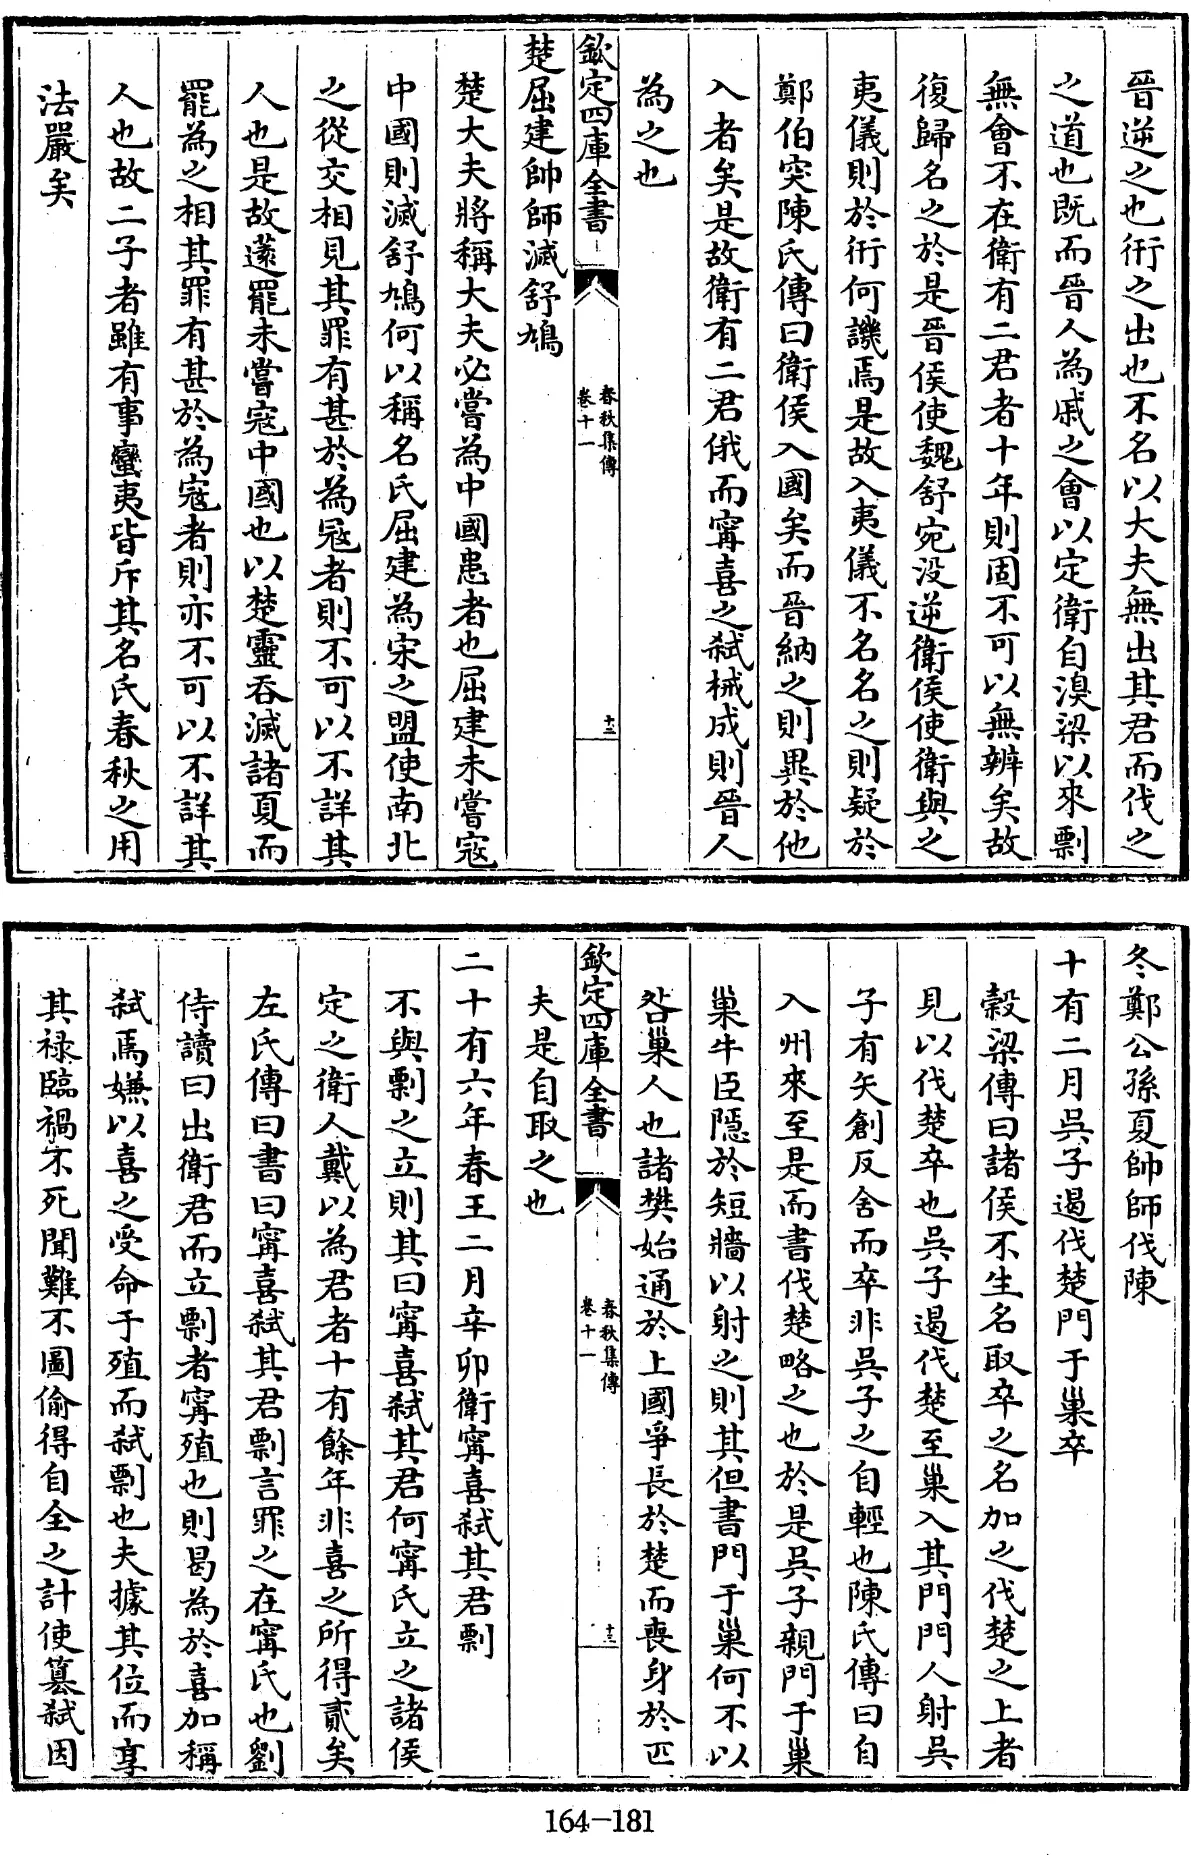 晉逆之也衎之出也不名以大夫無出其君而伐之
之道也既而晉人為戚之會以定衛自湨梁以來剽
無會不在衛有二君者十年則固不可以無辨矣故
復歸名之於是晉侯使魏舒宛没逆衛侯使衛與之
夷儀則於衎何譏焉是故入夷儀不名名之則疑於
鄭伯突陳氏傳曰衛侯入國矣而晉納之則異於他
入者矣是故衛有二君俄而甯喜之弒械成則晉人
為之也
欽定四庫全書
春秋集傳
卷十一
十二
楚屈建帥師滅舒鳩
楚大夫將稱大夫必嘗為中國患者也屈建未嘗寇
中國則滅舒鳩何以稱名氏屈建為宋之盟使南北
之從交相見其罪有甚於為寇者則不可以不詳其
人也是故薳罷未嘗寇中國也以楚靈吞滅諸夏而
罷為之相其罪有甚於為寇者則亦不可以不詳其
人也故二子者雖有事蠻夷皆斥其名氏春秋之用
法嚴矣
冬鄭公孫夏帥師伐陳
十有二月吳子遏伐楚門于巢卒
穀梁傳曰諸侯不生名取卒之名加之伐楚之上者
見以伐楚卒也吳子遏伐楚至巢入其門門人射吳
子有矢創反舍而卒非吳子之自輕也陳氏傳曰自
入州來至是而書伐楚略之也於是吳子親門于巢
巢牛臣隱於短牆以射之則其但書門于巢何不以
咎巢人也諸樊始通於上國爭長於楚而喪身於匹
欽定四庫全書
春秋集傳
卷十一
十三
夫是自取之也
二十有六年春王二月辛卯衛甯喜弒其君剽
不與剽之立則其曰甯喜弒其君何甯氏立之諸侯
定之衛人戴以為君者十有餘年非喜之所得貳矣
左氏傳曰書曰甯喜弒其君剽言罪之在甯氏也劉
侍讀曰出衛君而立剽者甯殖也則曷為於喜加稱
弒焉嫌以喜之受命于殖而弒剽也夫據其位而享
其禄臨禍不死聞難不圖偷得自全之計使篡弒因
164-181